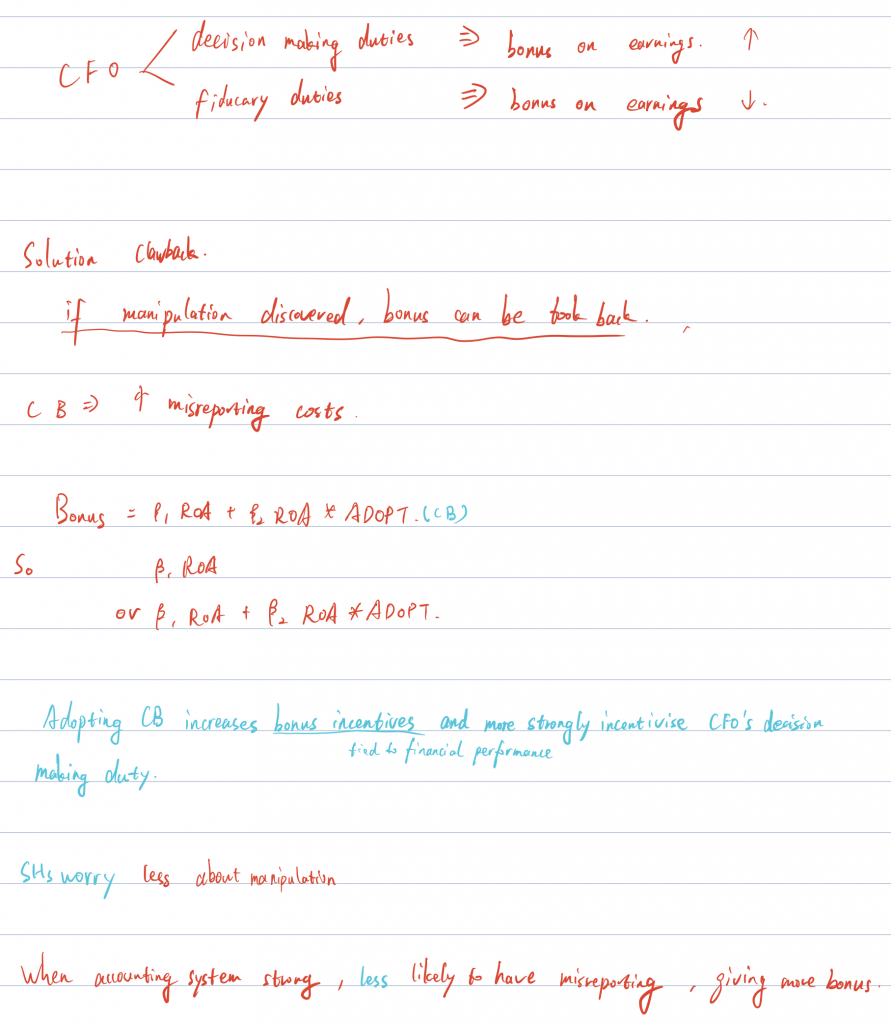 CFO
decision making duties ⇒ bonus on earnings. ↑
fiducary duties ⇒ bonus on earnings ↓.
Solution Clawback.
if manipulation discovered, bonus can be took back.
CB ⇒ ↑ misreporting costs.
Bonus = β₁ ROA + β₂ ROA * ADOPT. (CB)
So β₁ ROA
or β₁ ROA + β₂ ROA * ADOPT.
Adopting CB increases bonus incentives and more strongly incentivise CFO's decision
tied to financial performance
making duty.
SHs worry less about manipulation
When accounting system strong, less likely to have misreporting, giving more bonus.